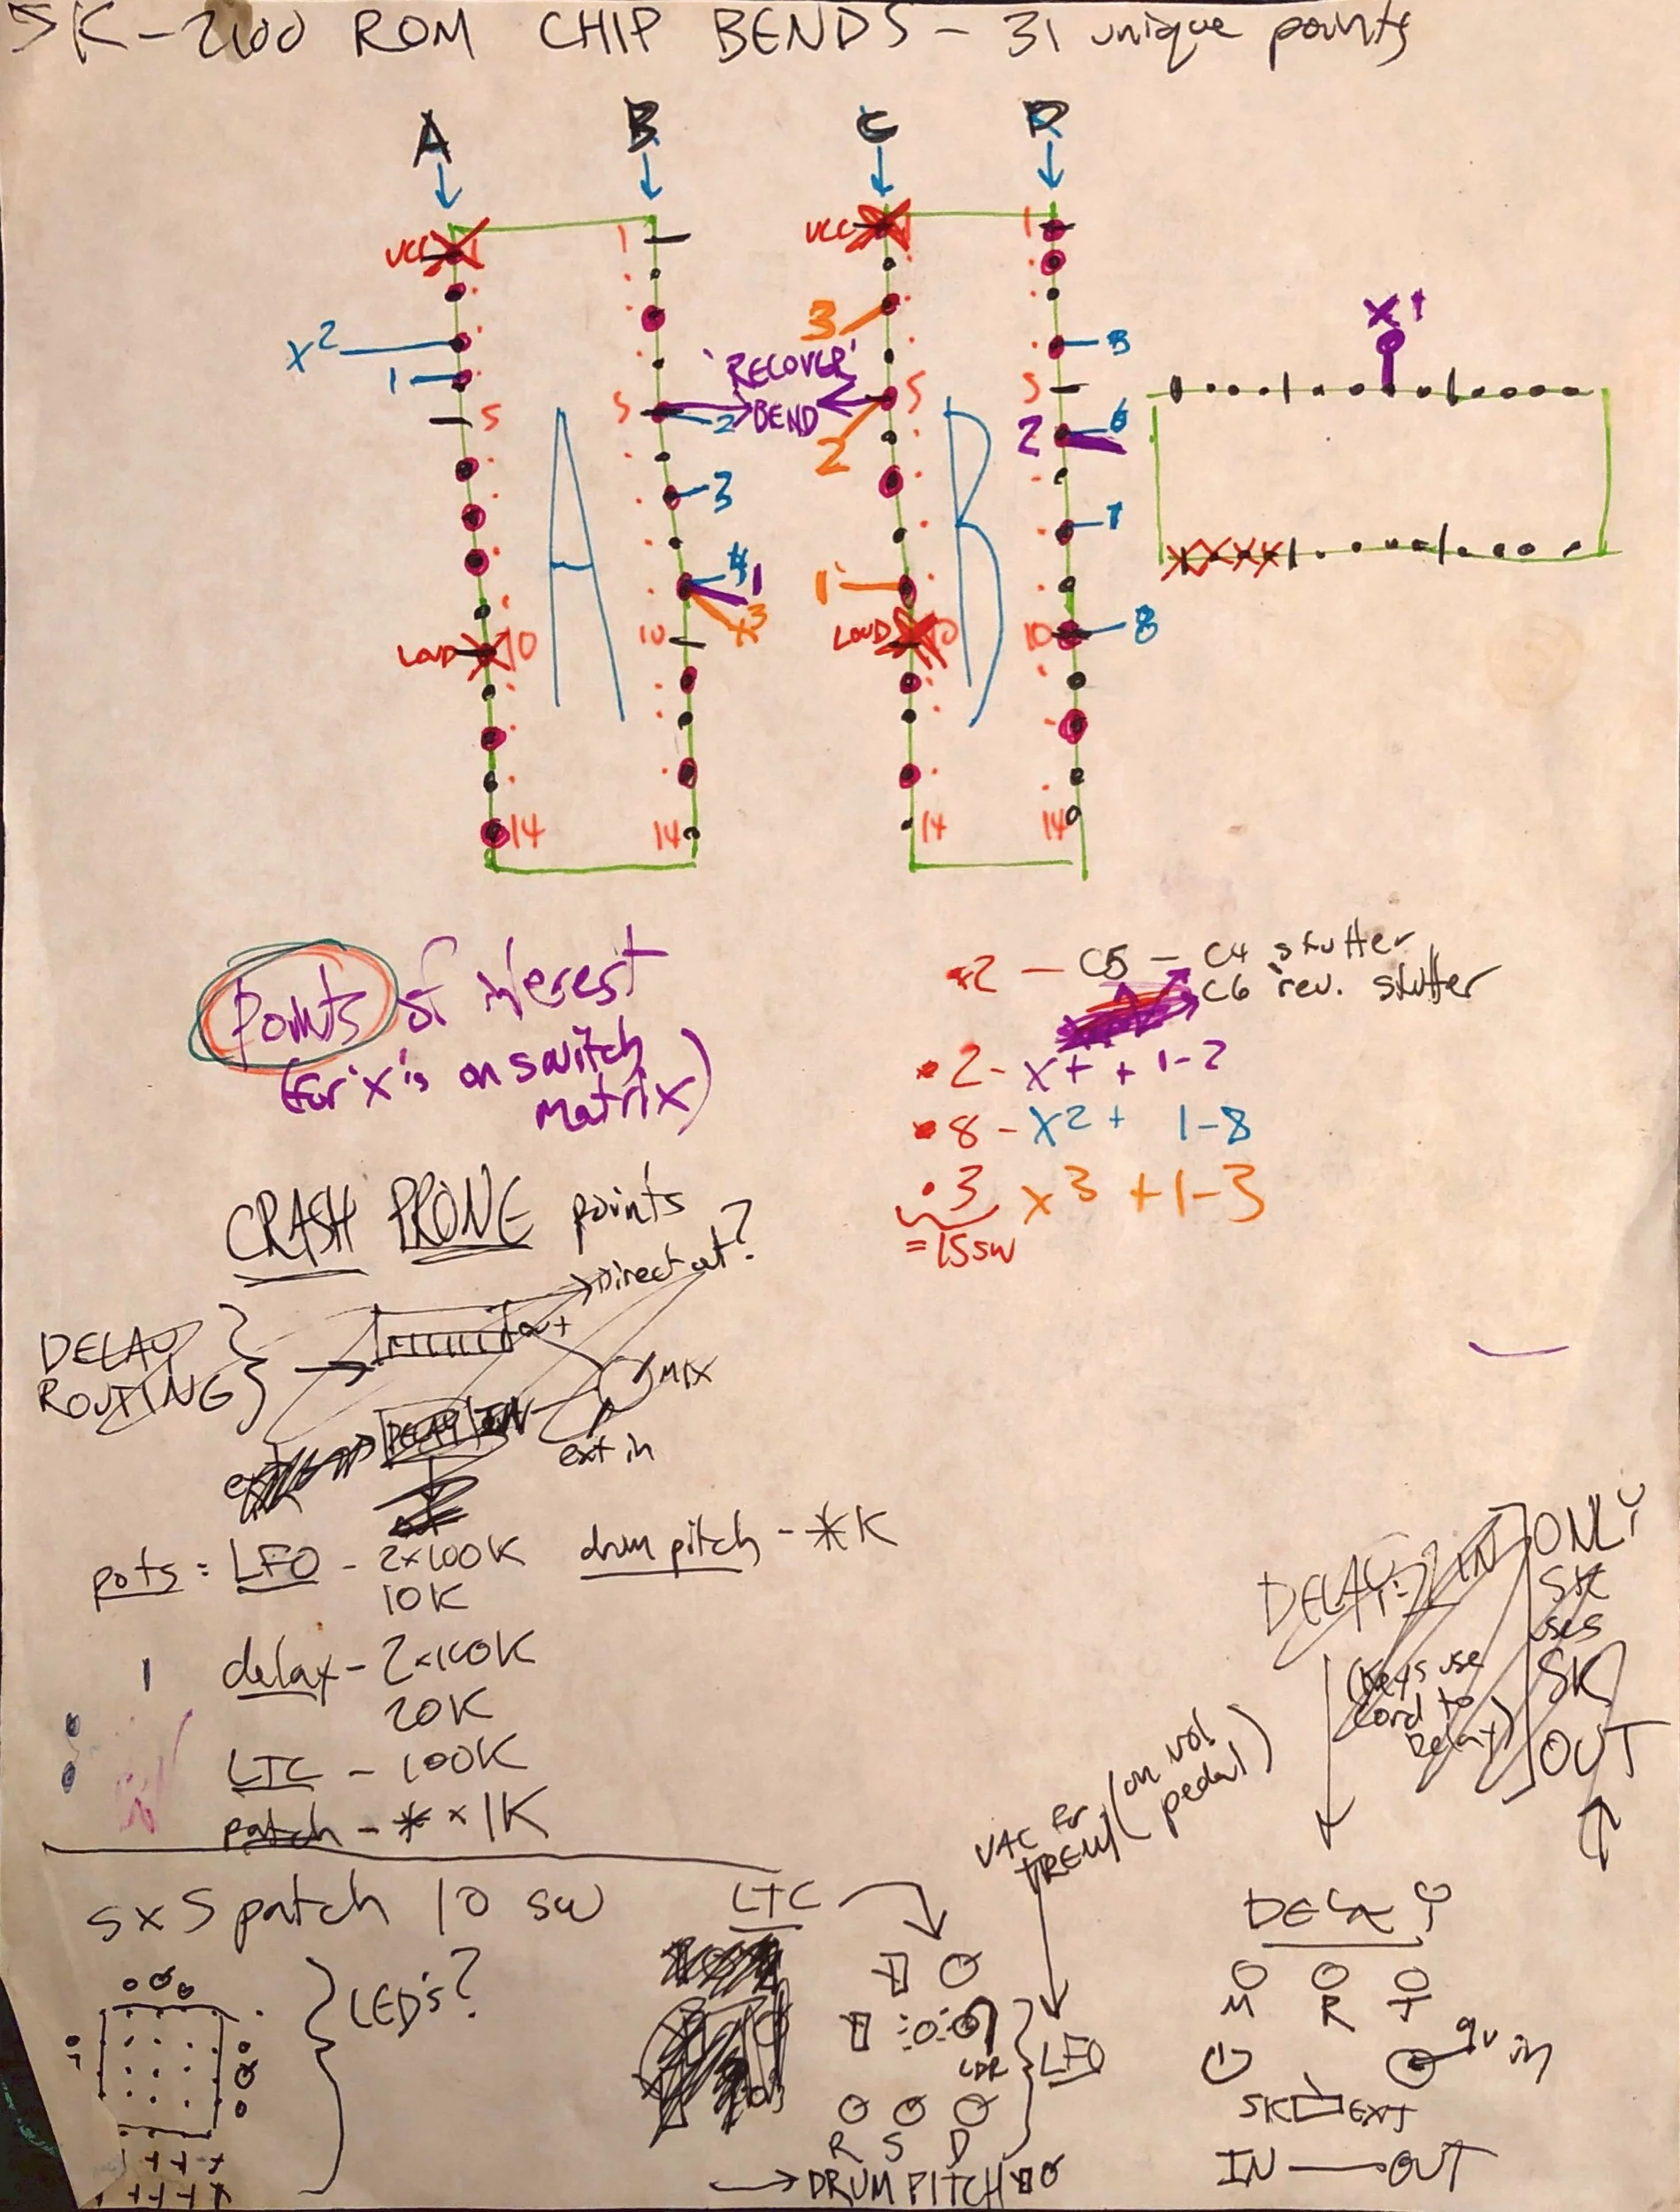 SK-2100 ROM CHIP BENDS - 31 unique points
A B C D
VCC 1 VCC 1
X2 3 3
1 'RECOVER'
5 5 BEND 5 5
2 2 2 6
3 7
4 1 1
X3
LOUD 10 10 LOUD 10 10 8
14 14 14 14
A B
X1
XXXX
Points of interest
(for 'x's on switch
matrix)
2 - C5 - C4 stutter
C6 rev. stutter
• 2 - X1 + 1-2
• 8 - X2 + 1-8
• 3 X3 + 1-3
= 15 sw
CRASH PRONE points
DELAY
ROUTING
Direct out?
MIX
DELAY IN
ext in
pots: LFO - 2x100K drum pitch - *K
10K
1 delay - 2x100K
20K
LTC - 100K
patch - * x 1K
DELAY IN
(Keys use
cord to
Delay)
ONLY
SK
uses
SK
OUT
TREM (on vol
pedal)
5x5 patch 10 sw
LED's?
LTC
LDR
LFO
R S D
→ DRUM PITCH
DELAY
M R T
9v in
SK EXT
IN — OUT